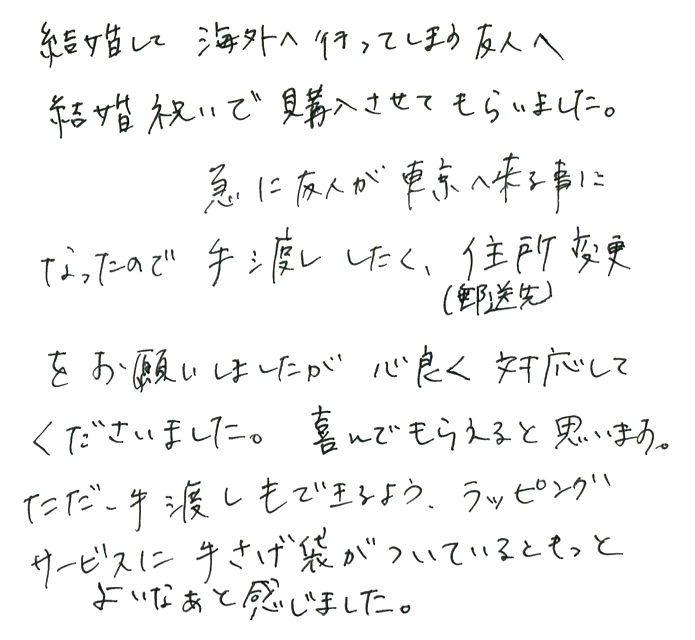 結婚して 海外へ行ってしまう友人へ
結婚祝いで購入させてもらいました。
急に友人が東京へ来る事に
なったので手渡ししたく、住所変更
(郵送先)
をお願いしましたが 心良く対応して
くださいました。 喜んでもらえると思います。
ただ、手渡しもできるよう、ラッピング
サービスに手さげ袋がついているともっと
よいなぁと感じました。